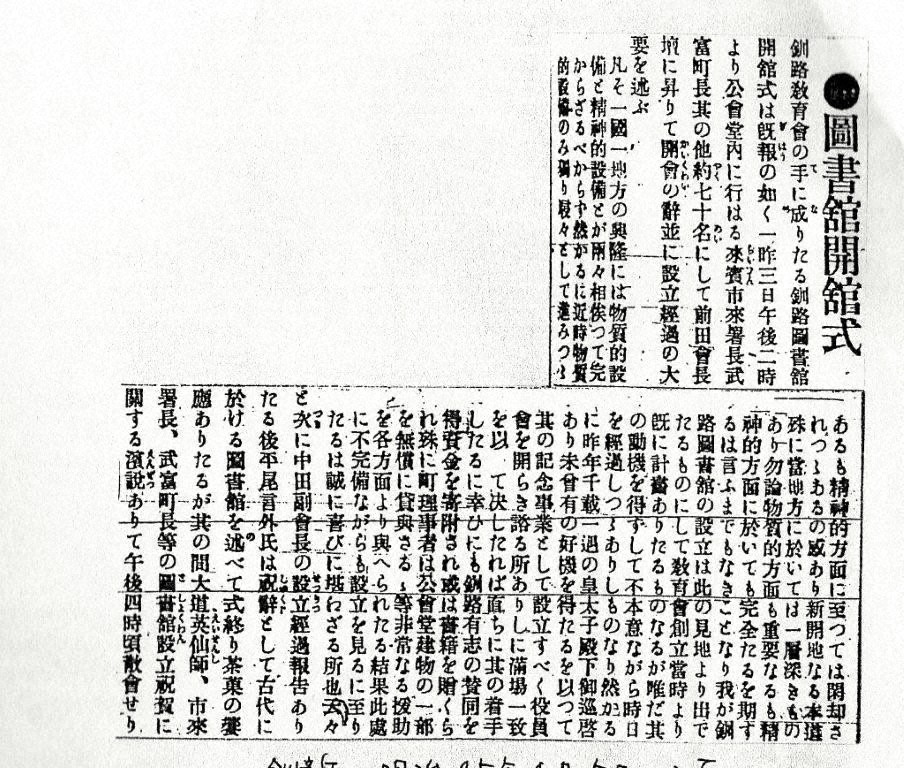 圖書舘開舘式
釧路敎育會の手に成りたる釧路圖書舘
開舘式は旣報の如く一昨三日午後二時
より公會堂內に行はる來賓市來署長武
富町長其の他約七十名にして前田會長
壇に昇りて開會の辭並に設立經過の大
要を述ぶ
凡そ一國一地方の興隆には物質的設
備と精神的設備とが兩々相俟つて完
からざるべからず然かるに近時物質
的設備のみ獨り駸々として進みつゝ
あるも精神的方面に至つては閑却さ
れつゝあるの感あり新開地なる本道
殊に當地方に於いては一層深きもの
あり勿論物質的方面も重要なるも精
神的方面に於いても完全たるを期す
るは言ふまでもなきことなり我が釧
路圖書舘の設立は此の見地より出で
たるものにして敎育會創立當時より
旣に計畫ありたるものなるが唯だ其
の動機を得ずして不本意ながら時日
を經過しつゝありしものなり然かる
に昨年千載一遇の皇太子殿下御巡啓
あり未曾有の好機を得たるを以つて
其の記念事業として設立すべく役員
會を開らき諮る所ありしに滿場一致
を以て決したれば直ちに其の着手
したるに幸ひにも釧路有志の賛同を
得資金を寄附され或は書籍を贈くら
れ殊に町理事者は公會堂建物の一部
を無償に貸與さるゝ等非常なる援助
を各方面より與へられたる結果此處
に不完備ながらも設立を見るに至り
たるは誠に喜びに堪わざる所也云々
と次に中田副會長の設立經過報告あり
たる後平尾言外氏は祝辭として古代に
於ける圖書舘を述べて式終り茶菓の饗
應ありたるが其の間大道英仙師、市來
署長、武富町長等の圖書舘設立祝賀に
關する演說ありて午後四時頃散會せり